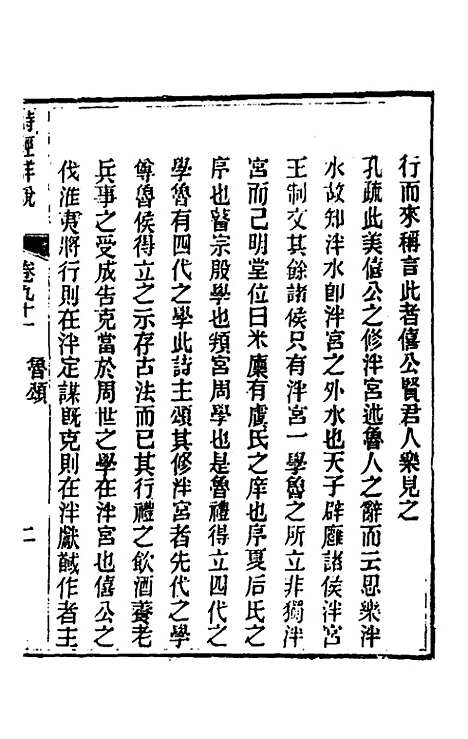 行而來稱言此者僖公賢君人樂見之
孔疏此美僖公之修泮宮述魯人之辭而云思樂泮
水故知泮水卽泮宮之外水也天子辟廱諸侯泮宮
王制文其餘諸侯只有泮宮一學魯之所立非獨泮
宮而已明堂位曰米廩有虞氏之庠也序夏后氏之
序也瞽宗殷學也頖宮周學也是魯禮得立四代之
學魯有四代之學此詩主頌其修泮宮者先代之學
尊魯侯得立之示存古法而已其行禮之飲酒養老
兵事之受成告克當於周世之學在泮宮也僖公之
伐淮夷將行則在泮定謀旣克則在泮獻馘作者主
詩經詳說
卷九十一 魯頌 二